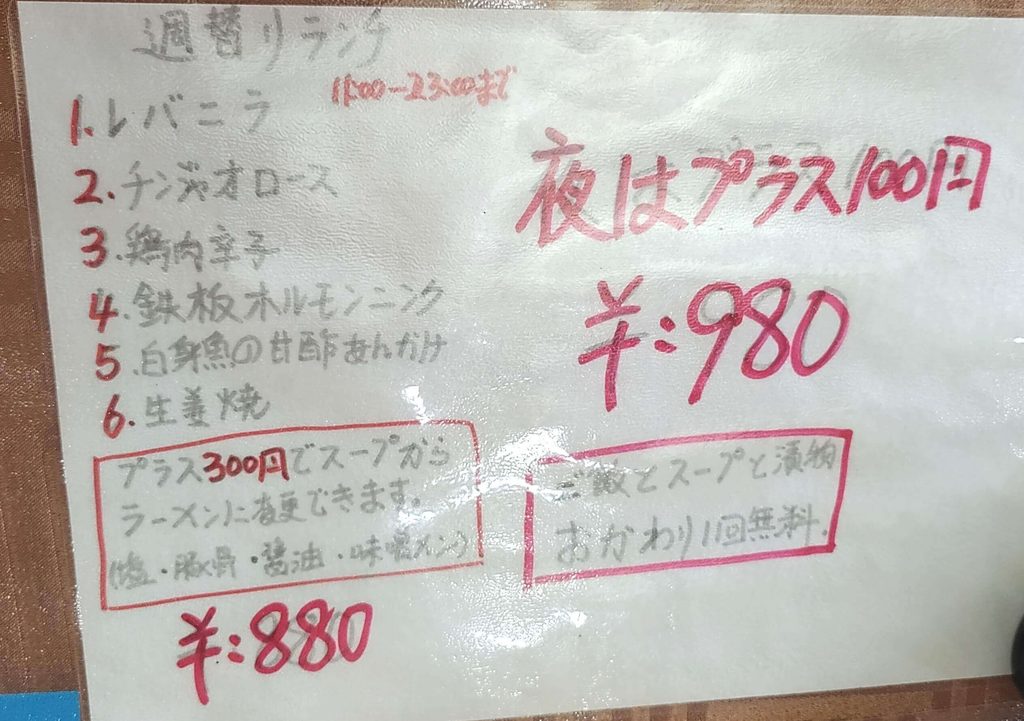 週替りランチ
11:00〜23:00まで
1.レバニラ
2.チンジャオロース
3.鶏肉辛子
4.鉄板ホルモンニンク
5.白身魚の甘酢あんかけ
6.生姜焼
プラス300円でスープから
ラーメンに変更できます。
(塩・豚骨・醤油・味噌メンう
¥:880
夜はプラス100円
¥:980
ご飯とスープと漬物
おかわり1回無料.